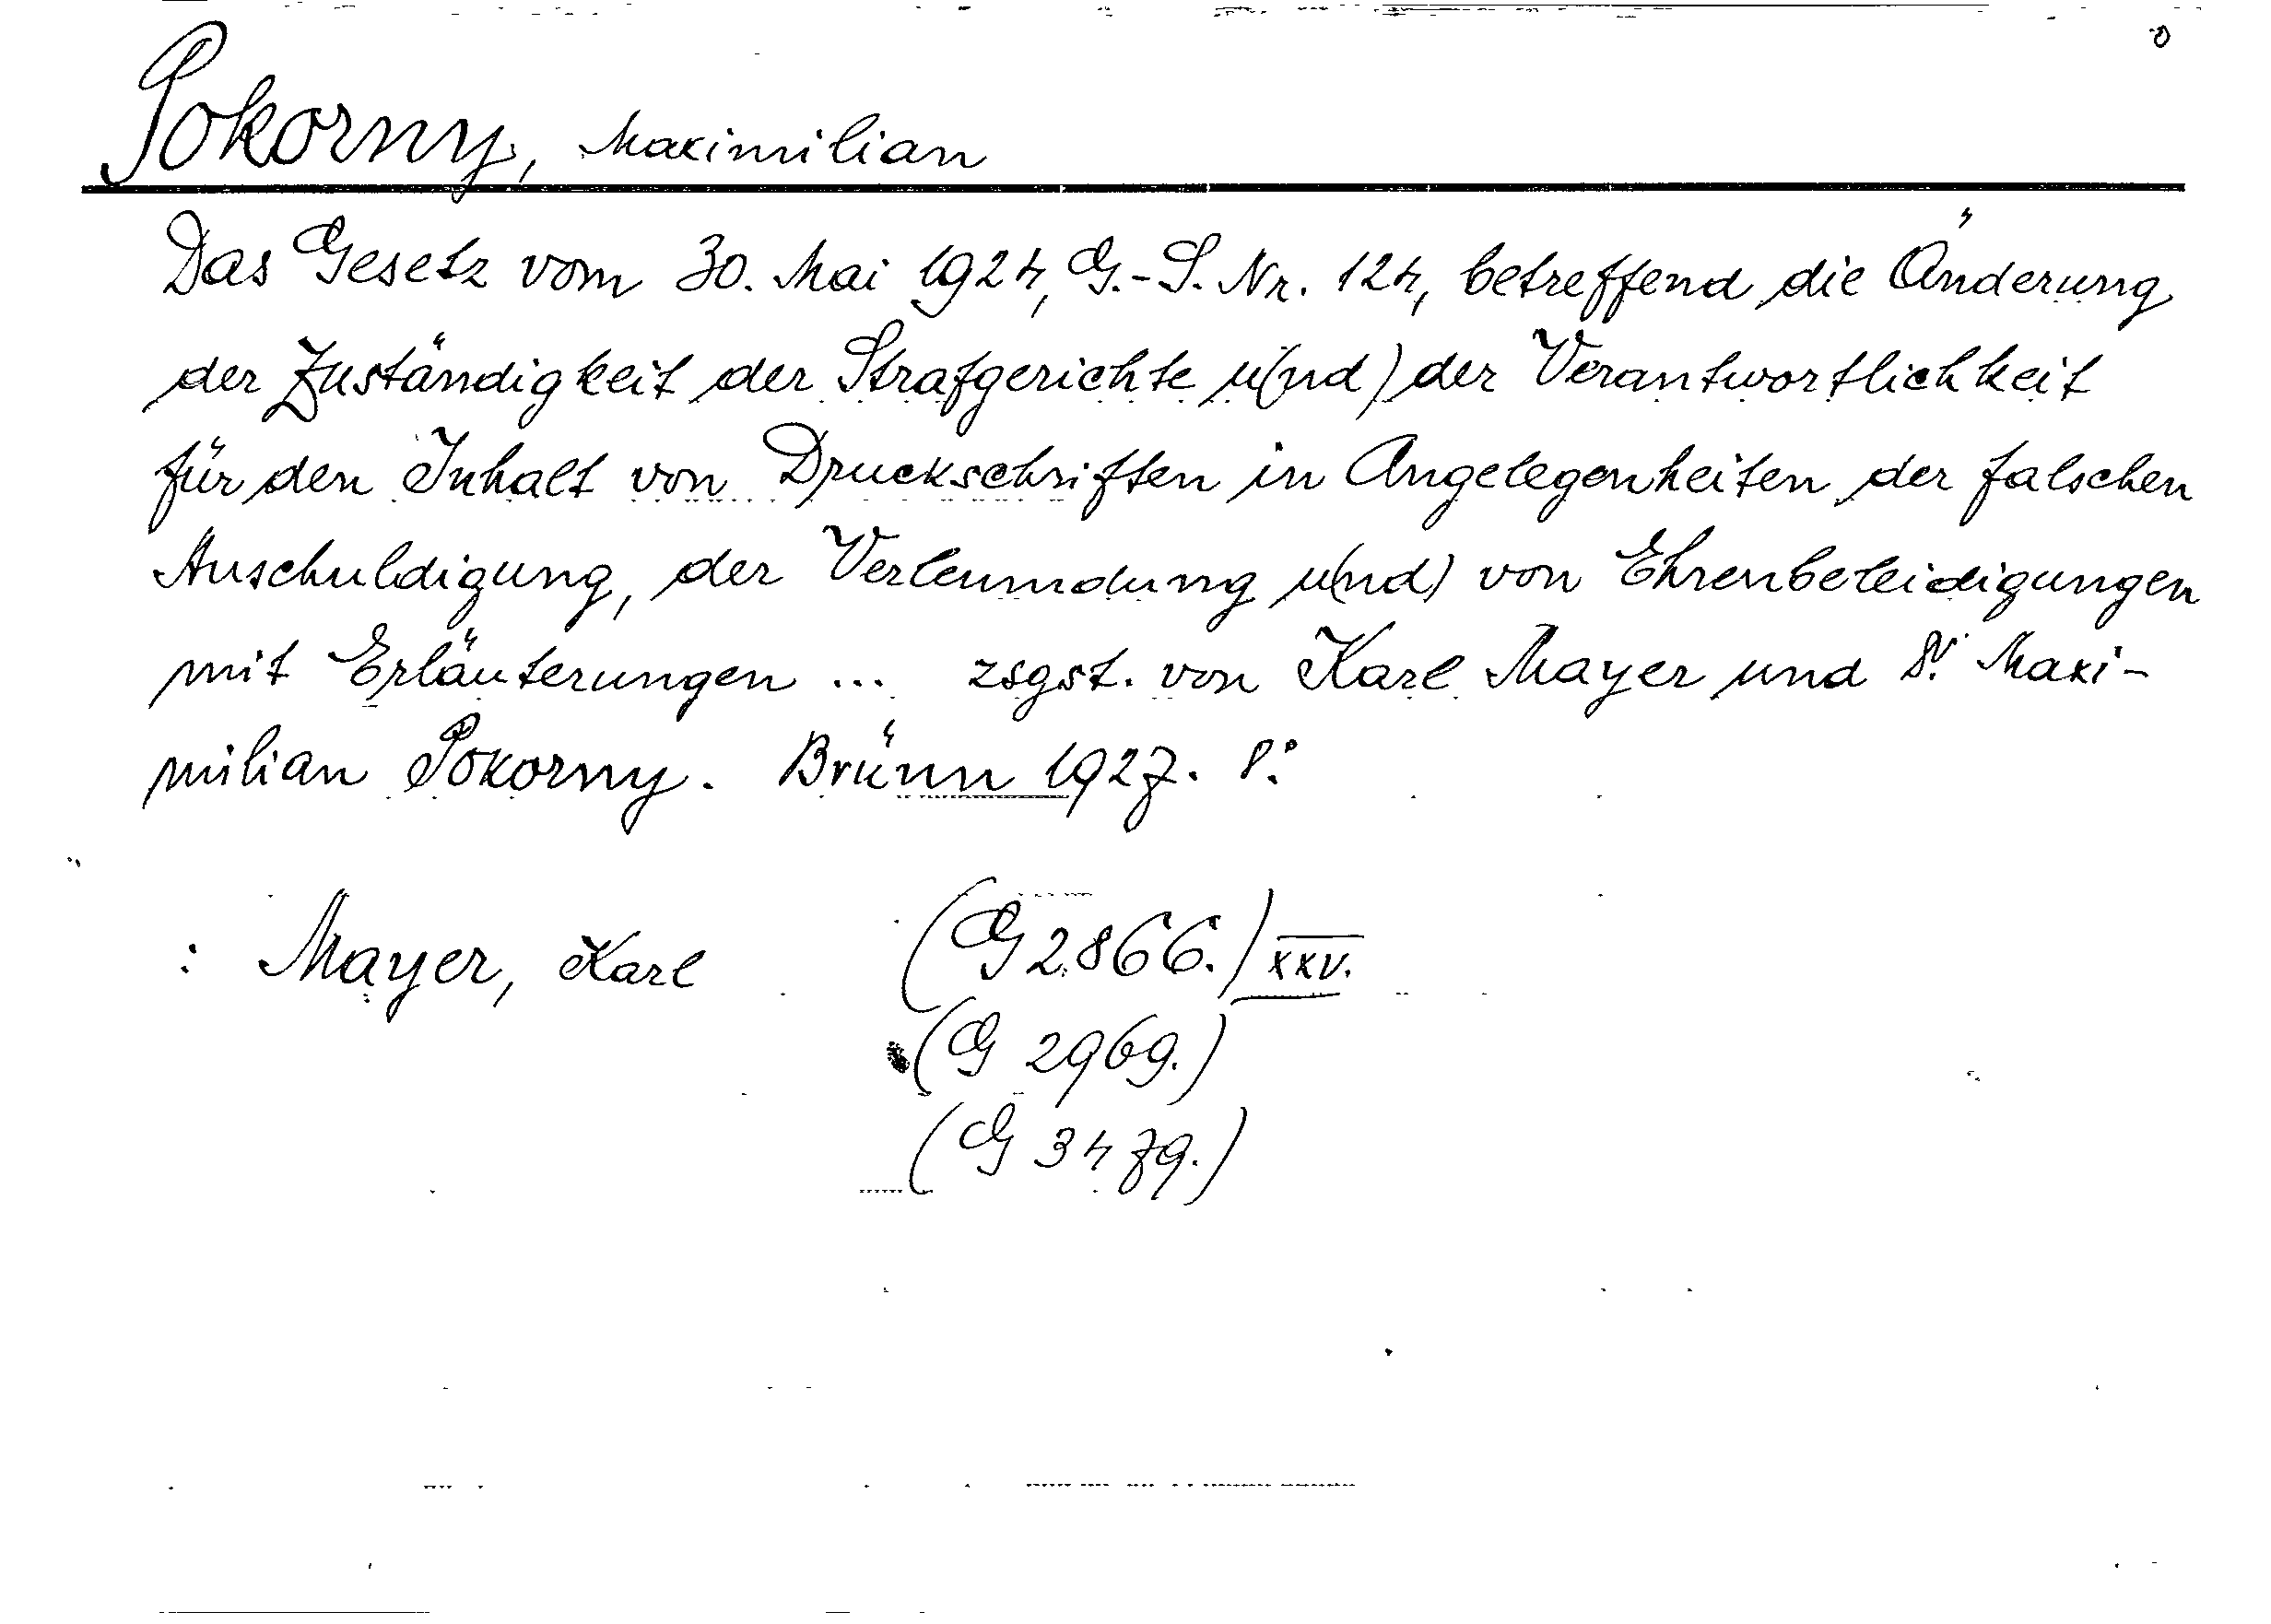 Pokorny, Maximilian
Das Gesetz vom 30. Mai 1924, G.-S. Nr. 124, betreffend die Änderung
der Zuständigkeit der Strafgerichte u(nd) der Verantwortlichkeit
für den Inhalt von Druckschriften in Angelegenheiten der falschen
Anschuldigung, der Verleumdung u(nd) von Ehrenbeleidigungen
mit Erläuterungen ... zsgst. von Karl Mayer und Maxi-
milian Pokorny. Brünn 1927. 8°.
: Mayer, Karl (G 2866.) XXV.
(G 2969.)
(G 3479.)